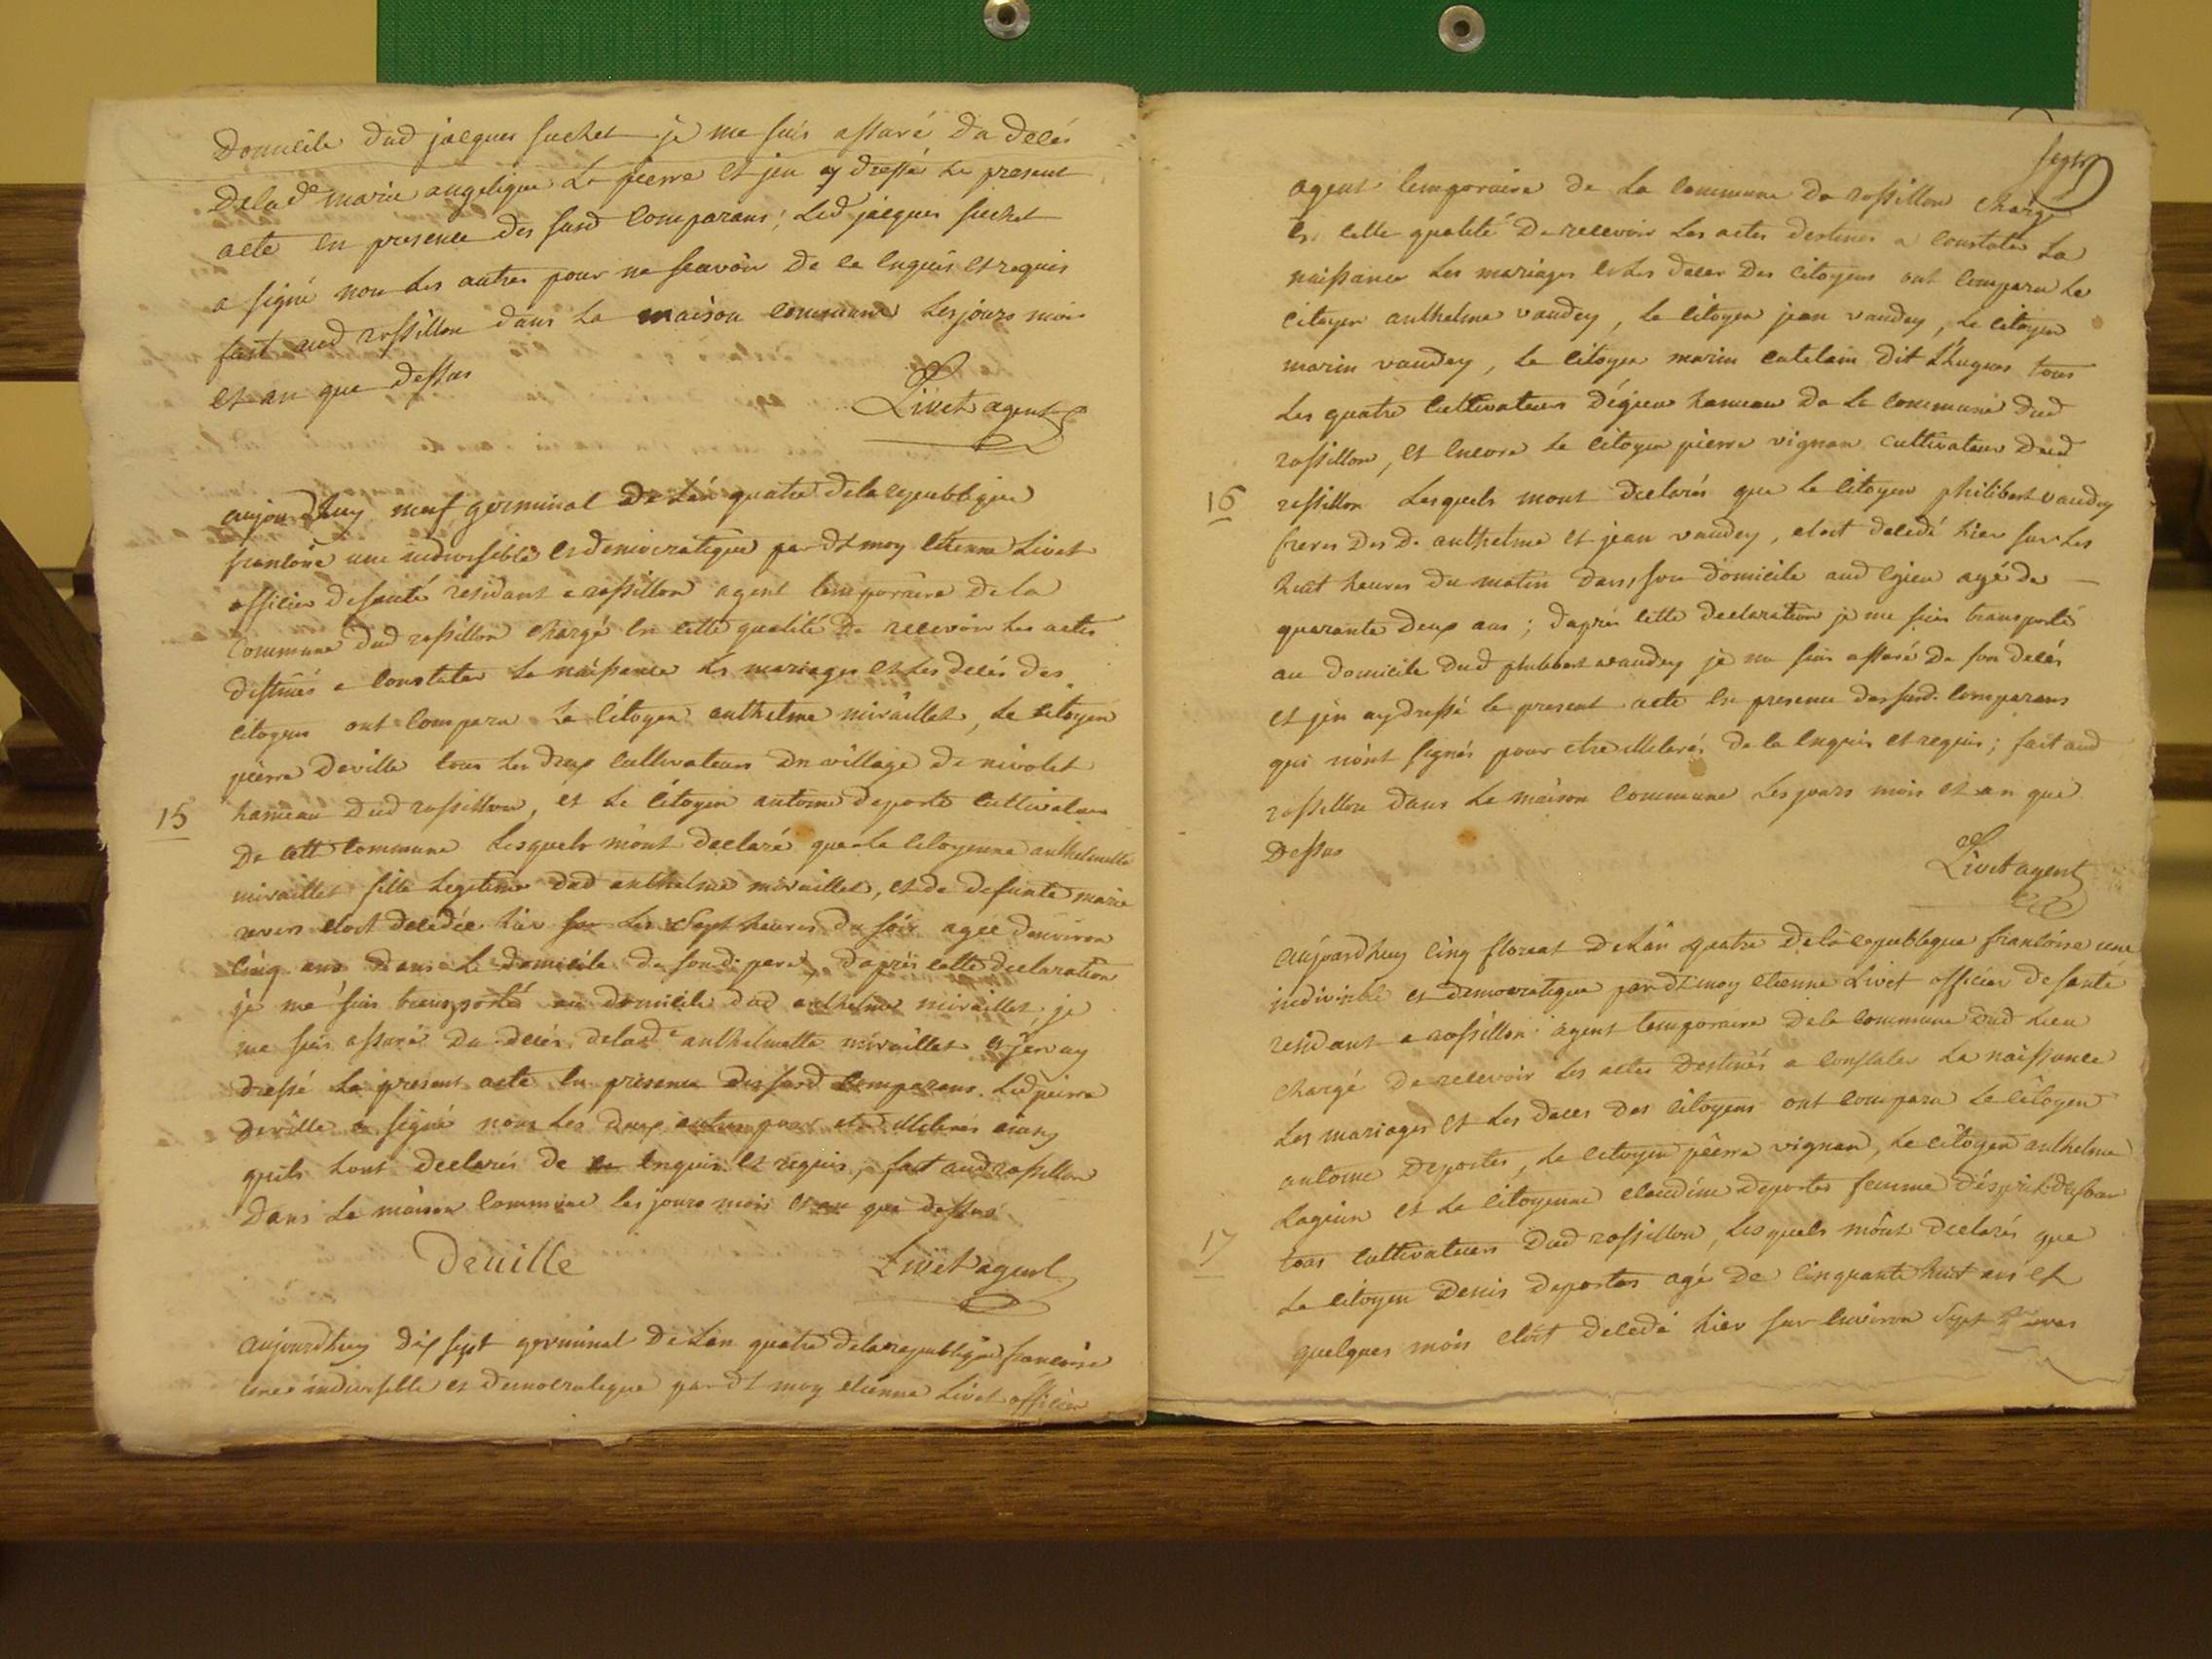 Domicile dud jacques suchet je me suis assuré du decés
de lad.e marie angelique la pierre et jen ay dressé le present
acte en presence des susd comparans; led jacques suchet
a signé non les autres pour ne scavoir de ce enquis et requis
fait aud rossillon dans la maison commune les jours mois
et an que dessus
Livet agent
aujourdhuy neuf germinal de lán quatre de la republique
francoise une indivisible et democratique par dt moy etienne Livet
officier de santé residant a rossillon agent temporaire de la
Commune dud rossillon chargé en cette qualité de recevoir les actes
destinés a constater la naissance les mariages et les decés des
citoyens ont comparu le citoyen anthelme miraillet, le citoyen
pierre deville tous les deux cultivateurs du village de nivolet
15
hameau dud rossillon, et le citoyen antoine deporte cultivateur
de cett commune lesquels mónt declaré que la citoyenne anthelmette
miraillet fille legitime dud anthelme miraillet, et de defunte marie
etoit decedée hier sur les sept heures du soir agée d'environ
cinq ans dans le domicile de sond. pere, dáprès cette declaration
je me suis transporté au domicile dud anthelme miraillet je
me suis assuré du decés de lad.e anthelmette miraillet et jen ay
dressé le present acte en presence des susd comparans. led pierre
deville a signé non les deux autres pour etre illeterés ainsy
quils lont declarés de ce enquis et requis, fait aud rossillon
dans la maison commune les jours mois et an que dessus
Deville Livet agent
aujourdhuy dix sept germinal de lán quatre de la republique francoise
une indivisible et democratique par dt moy etienne Livet officier
sept
agent temporaire de la commune de rossillon chargé
en cette qualité de recevoir les actes destinés a constater la
naissance les mariages et les deces des citoyens ont comparu le
citoyen anthelme vaudey, le citoyen jean vaudey, le citoyen
marin vaudey, le citoyen marin catelain dit tous
les quatre cultivateurs dégieu hameau de la commune dud
rossillon, et encore le citoyen pierre vignan cultivateur dud
16
rossillon lesquels mont declarés que le citoyen philibert vaudey
freres des d. anthelme et jean vaudey, etoit decedé hier sur les
huit heures du matin dans son domicile aud egieu agé de
quarante deux ans; daprés cette declaration je me suis transporté
au domicile dud philibert vaudey je me suis assuré de son decés
et jén ay dressé le present acte en presence des susd. comparans
qui nónt signés pour etre illeterés de ce enquis et requis; fait aud
rossillon dans la maison commune les jours mois et an que
dessus
Livet agent
aujourdhuy cinq floreal de lán quatre de la republique francoise une
indivisible et democratique par dt moy etienne Livet officier de santé
residant a rossillon agent temporaire de la commune dud lieu
chargé de recevoir les actes destinés a constater la naissance
les mariages et les deces des citoyens ont comparu le citoyen
antoine deportes, le citoyen pierre vignan, le citoyen anthelme
et la citoyenne claudine deportes femme
17
tous cultivateurs dud rossillon, lesquels mónt declarés que
le citoyen Denis deportes agé de cinquante huit ans et
quelques mois etoit decedé hier sur environ sept heures